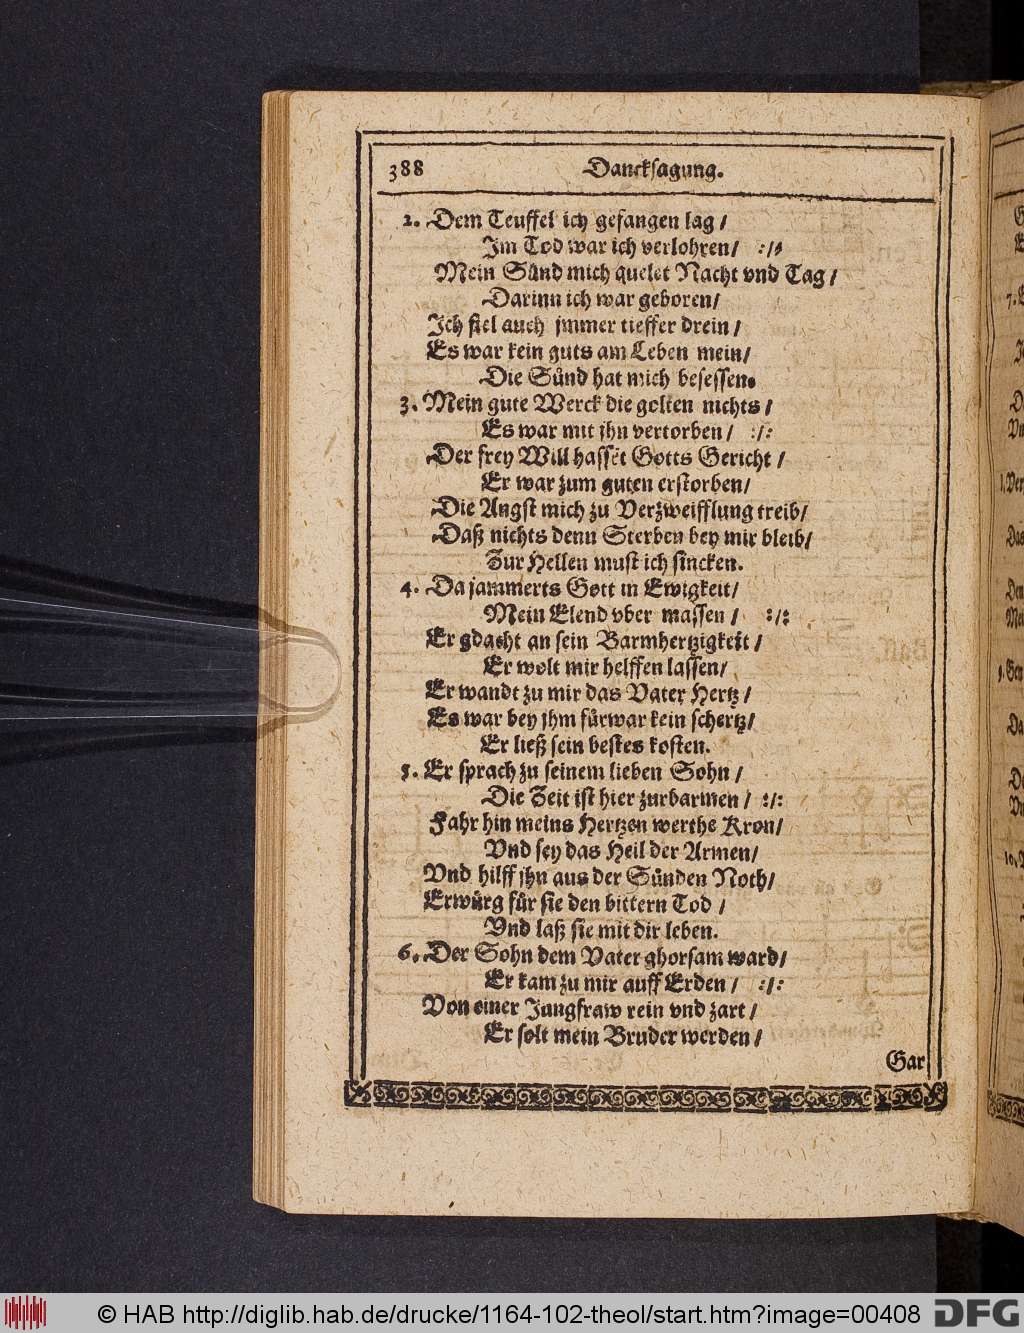 388 Dancksagung.
2. Dem Teuffel ich gefangen lag /
Im Tod war ich verlohren / :/:
Mein Sünd mich quelet Nacht vnd Tag /
Darinn ich war geboren /
Ich fiel auch jmmer tieffer drein /
Es war kein guts am Leben mein /
Die Sünd hat mich besessen.
3. Mein gute Werck die golten nichts /
Es war mit jhn vertorben / :/:
Der frey Will hasset Gotts Gericht /
Er war zum guten erstorben /
Die Angst mich zu Verzweifflung treib /
Daß nichts denn Sterben bey mir bleib /
Zur Hellen must ich sincken.
4. Da jammerts Gott in Ewigkeit /
Mein Elend vber massen / :/:
Er gdacht an sein Barmhertzigkeit /
Er wolt mir helffen lassen /
Er wandt zu mir das Vater Hertz /
Es war bey jhm fürwar kein schertz /
Er ließ sein bestes kosten.
5. Er sprach zu seinem lieben Sohn /
Die Zeit ist hier zurbarmen / :/:
Fahr hin meins Hertzen werthe Kron /
Vnd sey das Heil der Armen /
Vnd hilff jhn aus der Sünden Noth /
Erwürg für sie den bittern Tod /
Vnd laß sie mit dir leben.
6. Der Sohn dem Vater ghorsam ward /
Er kam zu mir auff Erden / :/:
Von einer Jungfraw rein vnd zart /
Er solt mein Bruder werden /
Gar
© HAB http://diglib.hab.de/drucke/1164-102-theol/start.htm?image=00408 DFG